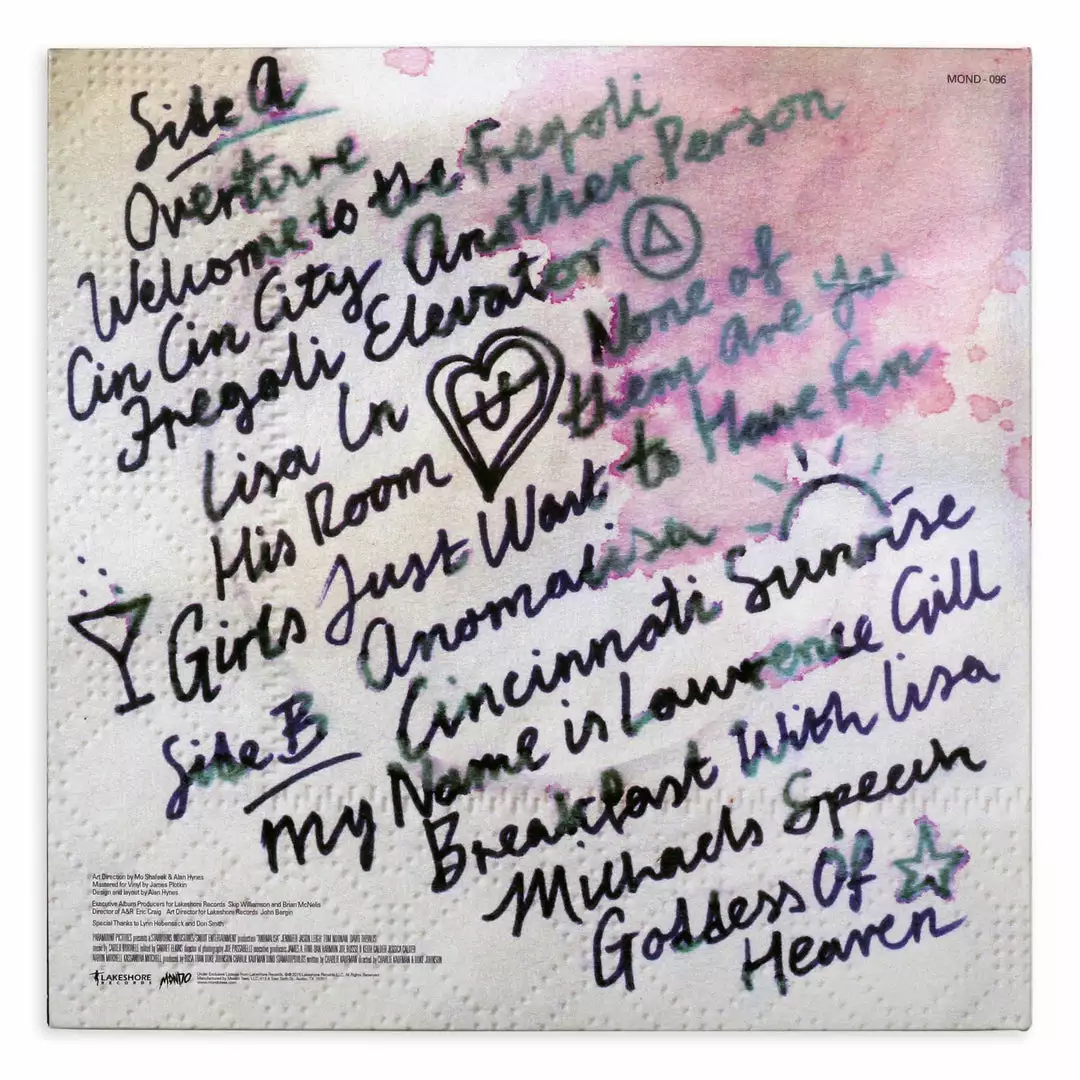 MOND - 096
Side A
Overture
Welcome to the Fregoli
Cin Cin City Another Person
Fregoli Elevator
Lisa In None of
His Room them are You
Girls Just Want to Have Fun
Anomalisa
Side B Cincinnati Sunrise
My Name is Lawrence Gill
Breakfast With Lisa
Michaels Speech
Goddess Of
Heaven
Art Direction by Mo Shafeek & Alan Hynes
Mastered for Vinyl by James Plotkin
Design and layout by Alan Hynes
Executive Album Producers for Lakeshore Records Skip Williamson and Brian McNelis
Director of A&R Eric Craig Art Director for Lakeshore Records John Bergin
Special Thanks to Lynn Hobensack and Don Smith
LAKESHORE
RECORDS
MONDO
www.mondotees.com